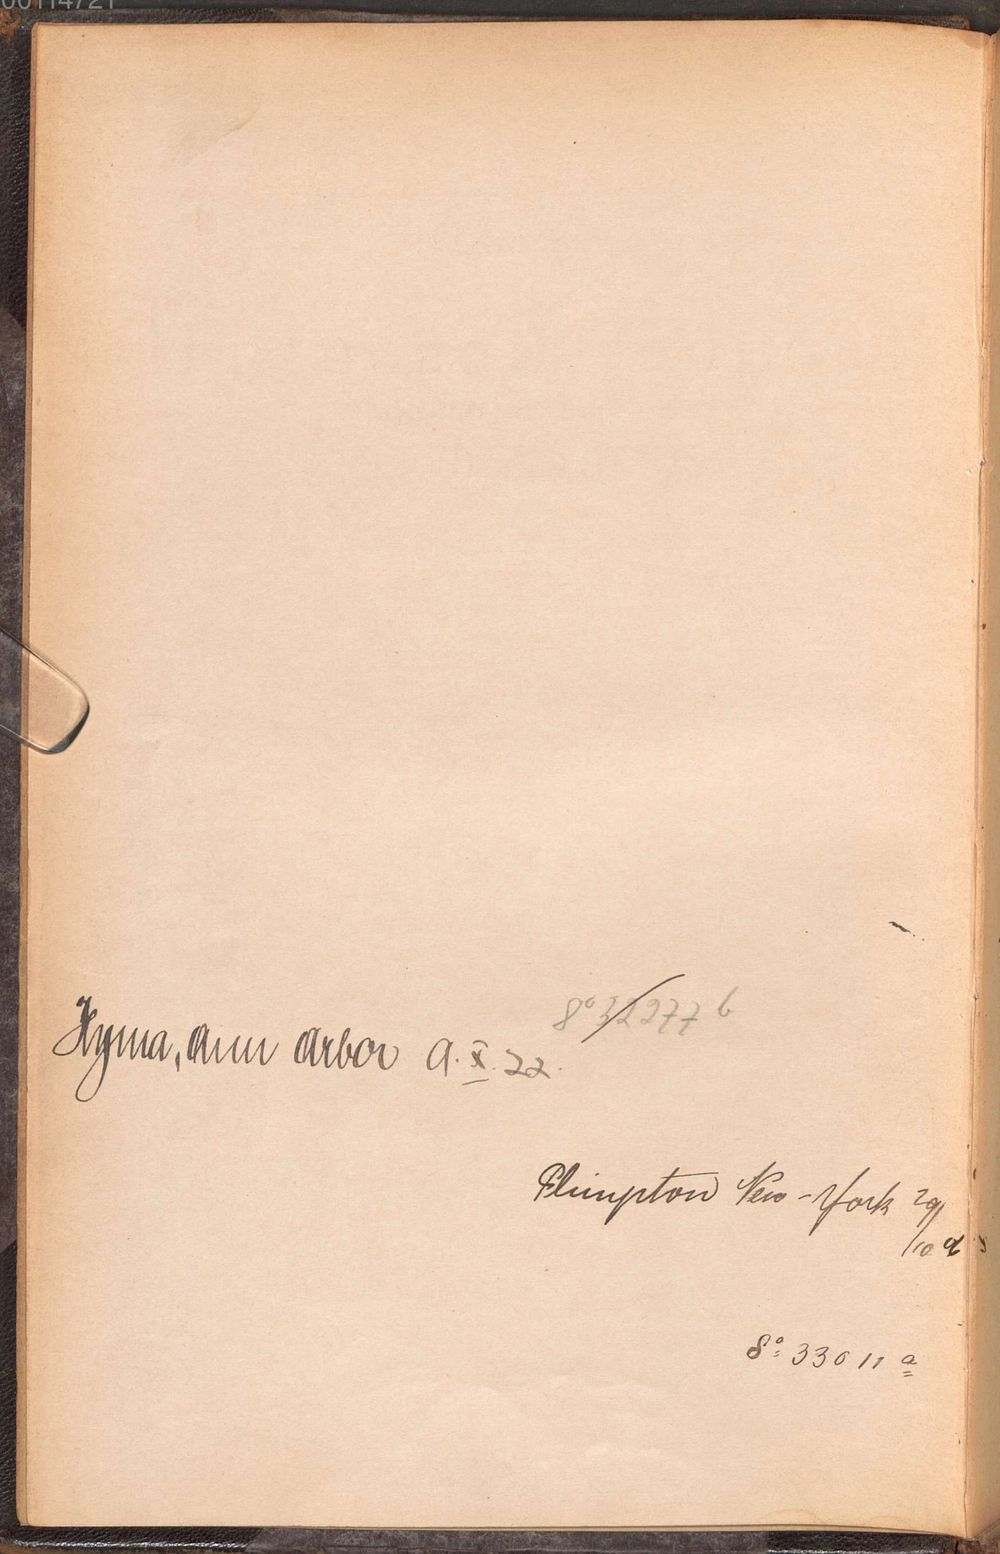 00114721
8° 32277 b
Hyma, Ann Arbor a. X. 22.
Plimpton New-York 29/
/10
8° 33011 a